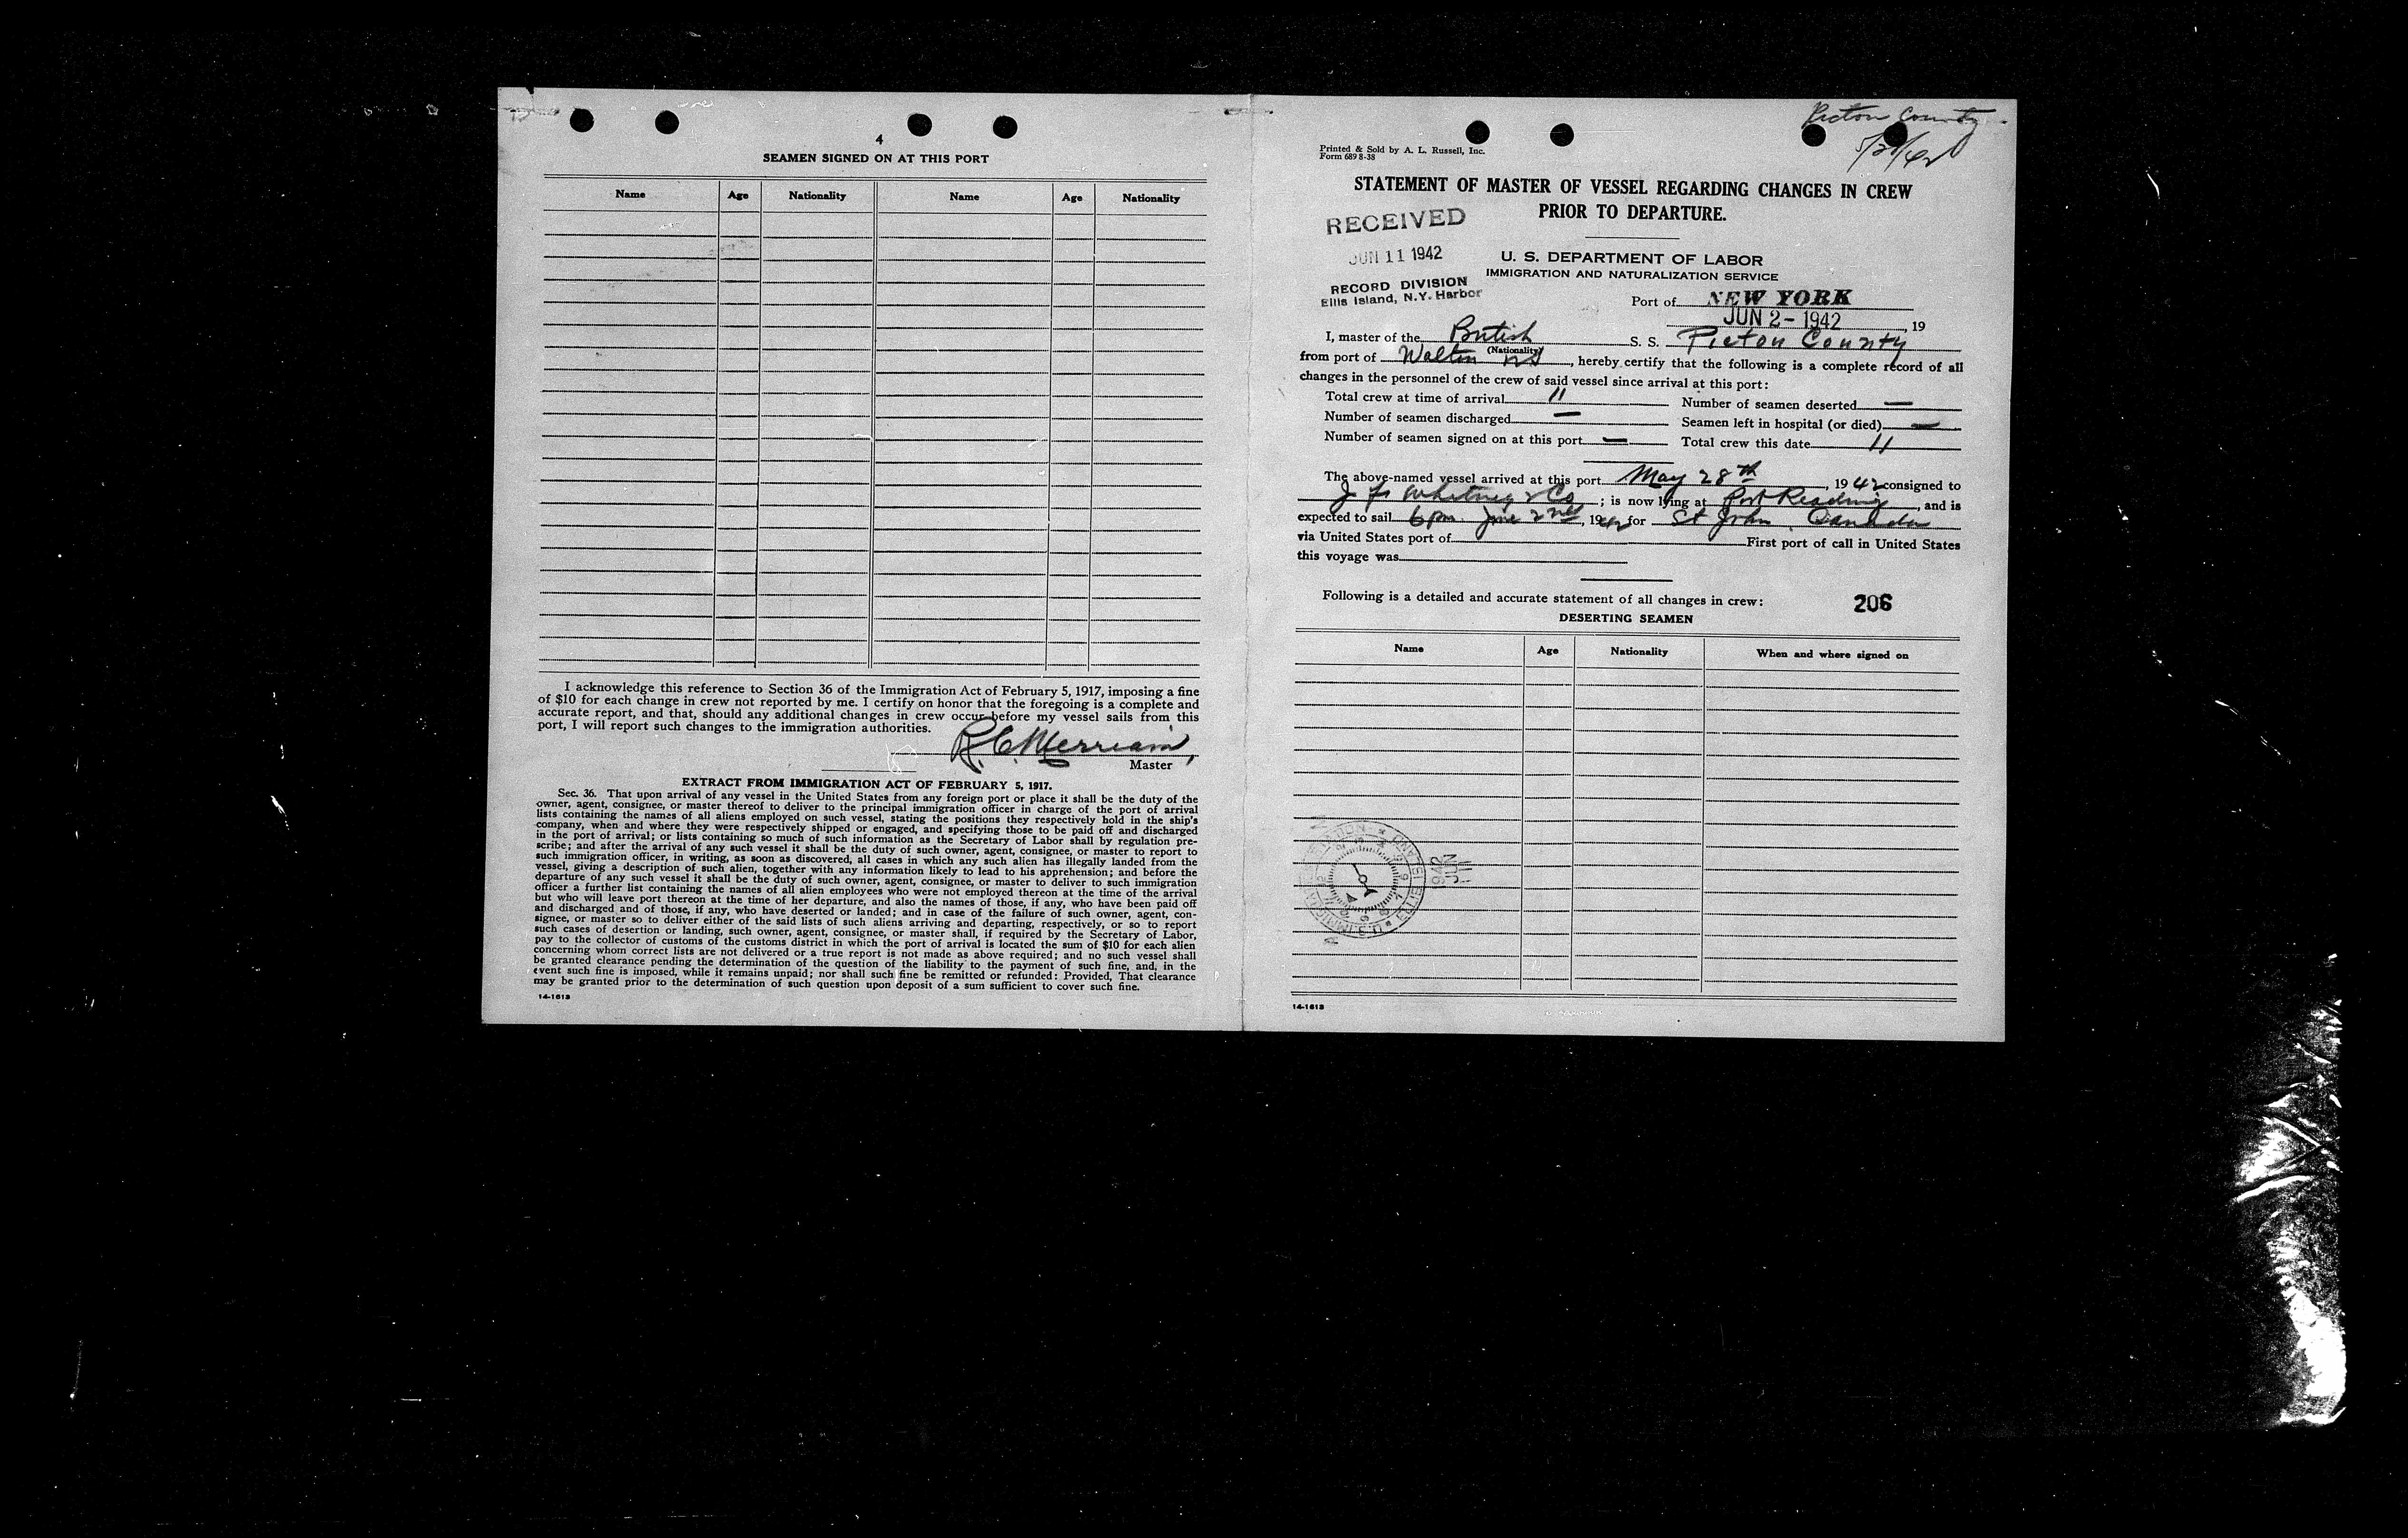 4
SEAMEN SIGNED ON AT THIS PORT
Name Age Nationality Name Age Nationality
I acknowledge this reference to Section 36 of the Immigration Act of February 5, 1917, imposing a fine
of $10 for each change in crew not reported by me. I certify on honor that the foregoing is a complete and
accurate report, and that, should any additional changes in crew occur before my vessel sails from this
port, I will report such changes to the immigration authorities.
R. C. Merriam,
Master
EXTRACT FROM IMMIGRATION ACT OF FEBRUARY 5, 1917.
Sec. 36. That upon arrival of any vessel in the United States from any foreign port or place it shall be the duty of the
owner, agent, consignee, or master thereof to deliver to the principal immigration officer in charge of the port of arrival
lists containing the names of all aliens employed on such vessel, stating the positions they respectively hold in the ship's
company, when and where they were respectively shipped or engaged, and specifying those to be paid off and discharged
in the port of arrival; or lists containing so much of such information as the Secretary of Labor shall by regulation pre-
scribe; and after the arrival of any such vessel it shall be the duty of such owner, agent, consignee, or master to report to
such immigration officer, in writing, as soon as discovered, all cases in which any such alien has illegally landed from the
vessel, giving a description of such alien, together with any information likely to lead to his apprehension; and before the
departure of any such vessel it shall be the duty of such owner, agent, consignee, or master to deliver to such immigration
officer a further list containing the names of all alien employees who were not employed thereon at the time of the arrival
but who will leave port thereon at the time of her departure, and also the names of those, if any, who have been paid off
and discharged and of those, if any, who have deserted or landed; and in case of the failure of such owner, agent, con-
signee, or master so to deliver either of the said lists of such aliens arriving and departing, respectively, or so to report
such cases of desertion or landing, such owner, agent, consignee, or master shall, if required by the Secretary of Labor,
pay to the collector of customs of the customs district in which the port of arrival is located the sum of $10 for each alien
concerning whom correct lists are not delivered or a true report is not made as above required; and no such vessel shall
be granted clearance pending the determination of the question of the liability to the payment of such fine, and, in the
event such fine is imposed, while it remains unpaid; nor shall such fine be remitted or refunded: Provided, That clearance
may be granted prior to the determination of such question upon deposit of a sum sufficient to cover such fine.
14-1613
Picton County
5/28/42
Printed & Sold by A. L. Russell, Inc.
Form 689 8-38
STATEMENT OF MASTER OF VESSEL REGARDING CHANGES IN CREW
PRIOR TO DEPARTURE.
RECEIVED
JUN 11 1942
RECORD DIVISION
Ellis Island, N.Y. Harbor
U. S. DEPARTMENT OF LABOR
IMMIGRATION AND NATURALIZATION SERVICE
Port of NEW YORK
JUN 2 - 1942, 19
I, master of the British S. S. Picton County
(Nationality)
from port of Walton NS, hereby certify that the following is a complete record of all
changes in the personnel of the crew of said vessel since arrival at this port:
Total crew at time of arrival 11 Number of seamen deserted —
Number of seamen discharged — Seamen left in hospital (or died) —
Number of seamen signed on at this port — Total crew this date 11
The above-named vessel arrived at this port May 28th, 1942 consigned to
J F Whitney & Co; is now lying at Port Reading, and is
expected to sail 6 pm June 2nd, 1942 for St John Canada
via United States port of First port of call in United States
this voyage was
Following is a detailed and accurate statement of all changes in crew:
206
DESERTING SEAMEN
Name Age Nationality When and where signed on
1942
JUN
11
14-1613